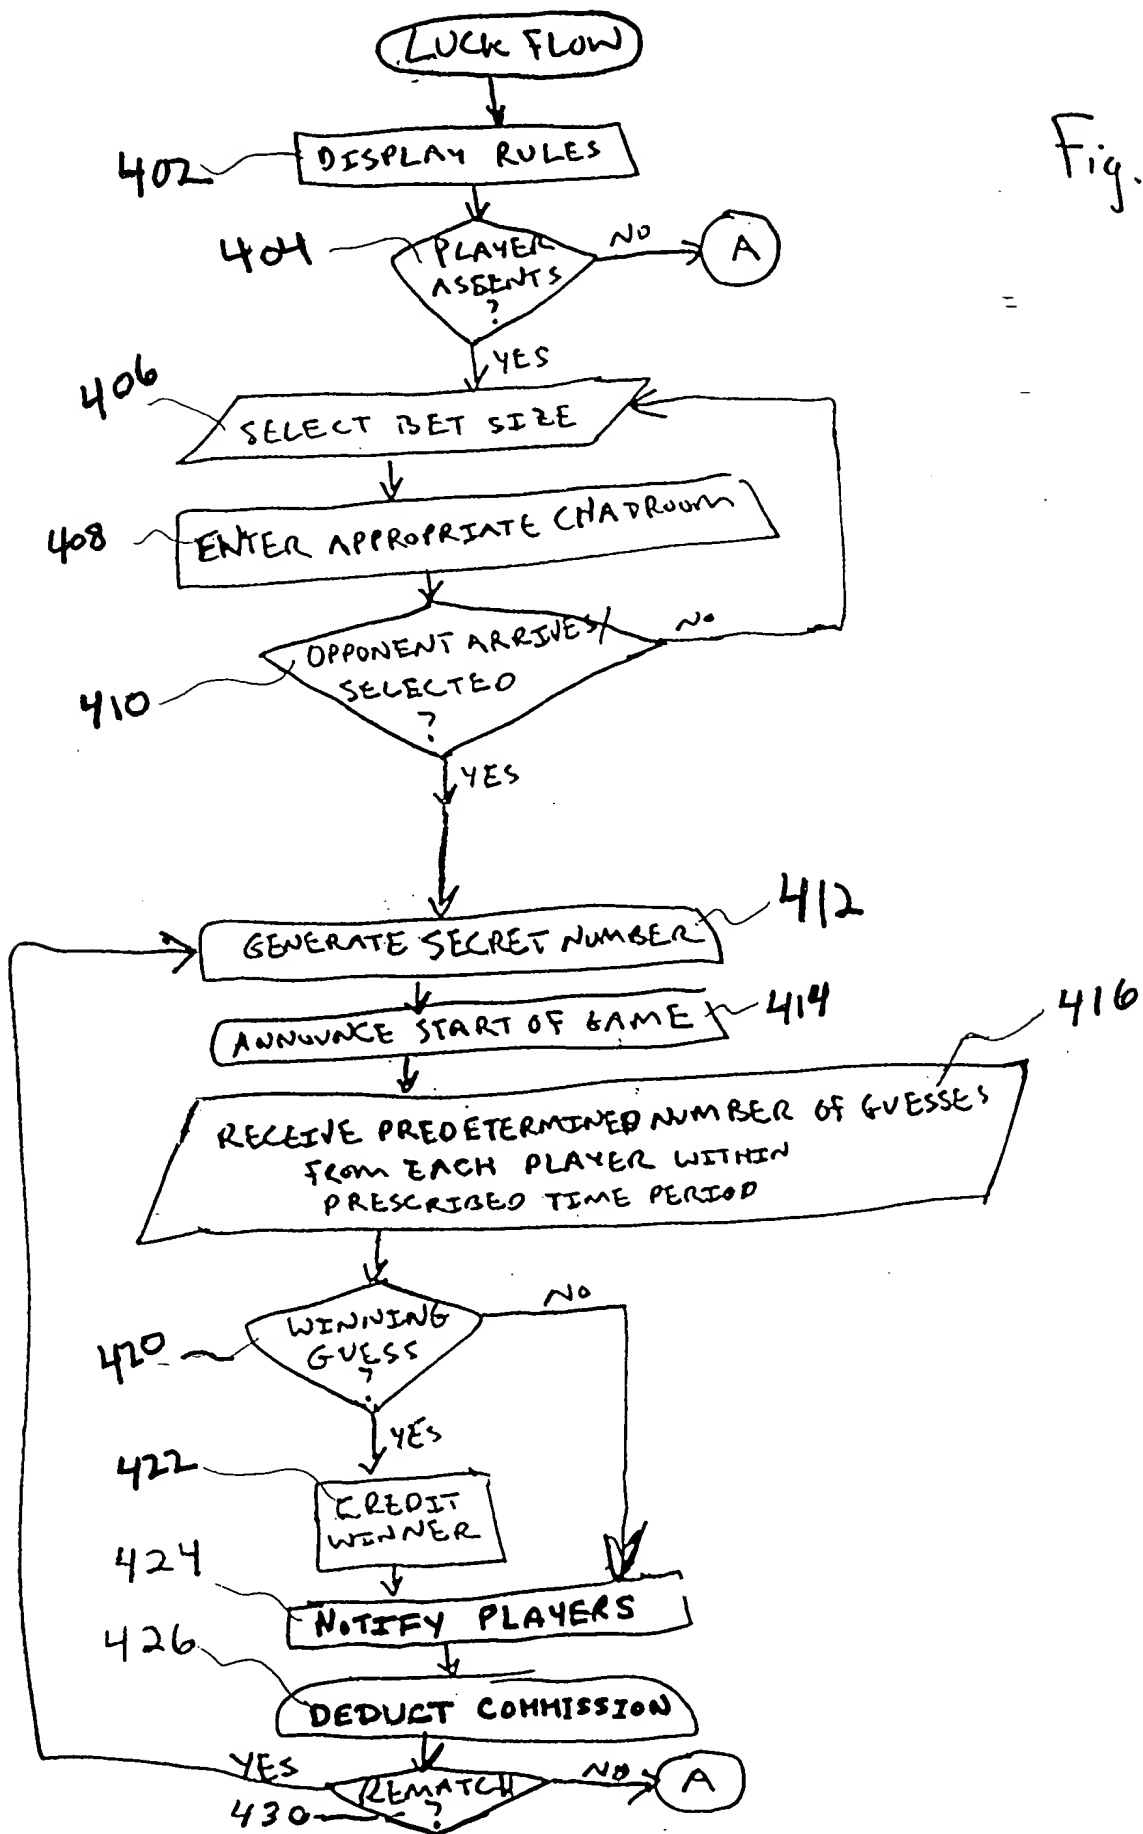 LUCK FLOW
Fig.
402
DISPLAY RULES
404
PLAYER
ASSENTS
?
NO
A
YES
406
SELECT BET SIZE
408
ENTER APPROPRIATE CHADROOM
410
OPPONENT ARRIVES/
SELECTED
?
NO
YES
412
GENERATE SECRET NUMBER
414
ANNOUNCE START OF GAME
416
RECEIVE PREDETERMINED NUMBER OF GUESSES
FROM EACH PLAYER WITHIN
PRESCRIBED TIME PERIOD
420
WINNING
GUESS
?
NO
YES
422
CREDIT
WINNER
424
NOTIFY PLAYERS
426
DEDUCT COMMISSION
YES
REMATCH
?
NO
A
430